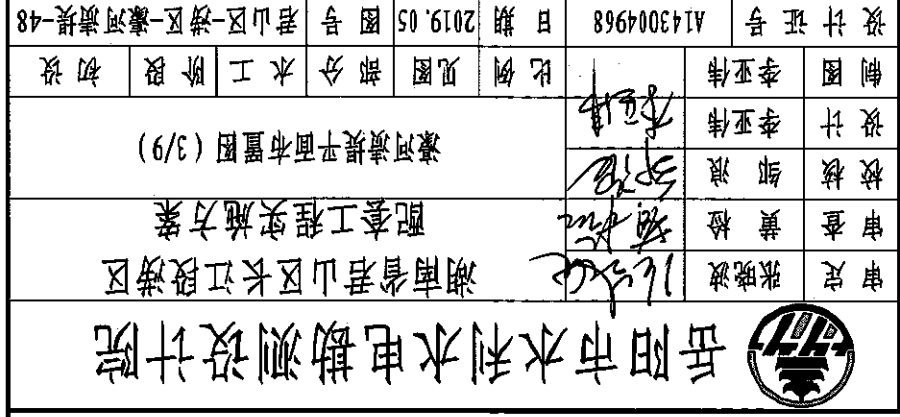 岳阳市水利水电勘测设计院
审定 张晓波 湖南省君山区长江段涝区
审查 黄检 配套工程实施方案
校核 邹浪 濠河渍堤平面布置图(3/9)
设计 李亚伟 李亚伟
制图 李亚伟 比例 见图 部分 水工 阶段 初设
设计证号 A143004968 日期 2019.05 图号 君山区-涝区-濠河渍堤-48